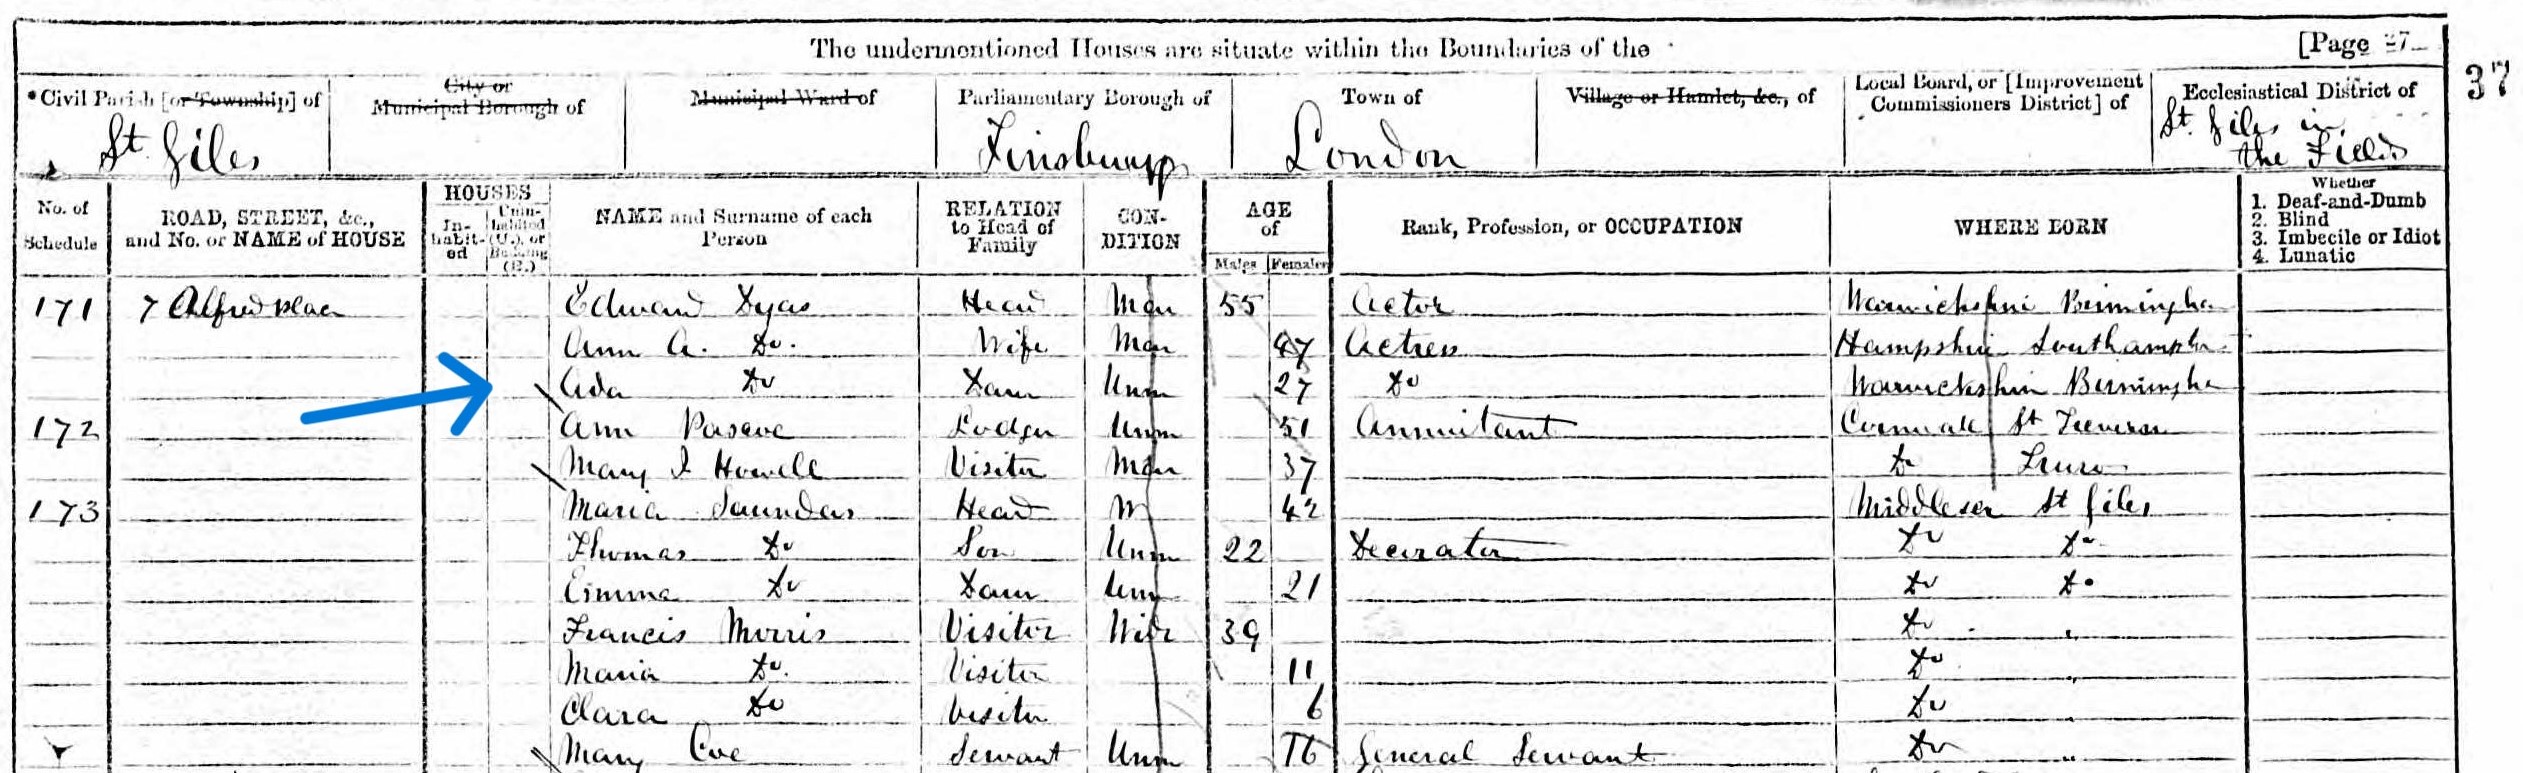 The undermentioned Houses are situate within the Boundaries of the [Page 27
37
Civil Parish [or Township] of City or Municipal Borough of Municipal Ward of Parliamentary Borough of Town of Village or Hamlet, &c., of Local Board, or [Improvement Commissioners District] of Ecclesiastical District of
St. Giles Finsbury London St. Giles in the Fields
No. of Schedule ROAD, STREET, &c., and No. or NAME of HOUSE HOUSES Inhabited Uninhabited (U.), or Building (B.) NAME and Surname of each Person RELATION to Head of Family CONDITION AGE of Males Females Rank, Profession, or OCCUPATION WHERE BORN Whether 1. Deaf-and-Dumb 2. Blind 3. Imbecile or Idiot 4. Lunatic
171 7 Alfred Place Edward Dyas Head Mar 55 Actor Warwickshire Birmingha
Ann A. Do. Wife Mar 47 Actress Hampshire Southampton
Ada Do Daur Unm 27 Do Warwickshire Birmingha
172 Ann Pascoe Lodger Unm 51 Annuitant Cornwall St
Mary J Howell Visitor Mar 37 Do Truro
173 Maria Saunders Head W 42 Middlesex St Giles
Thomas Do Son Unm 22 Decorator Do Do
Emma Do Daur Unm 21 Do Do
Francis Morris Visitor Widr 39 Do "
Maria Do. Visitor 11 Do "
Clara Do Visitor 6 Do "
Mary Coe Servant Unm 16 General Servant Do "